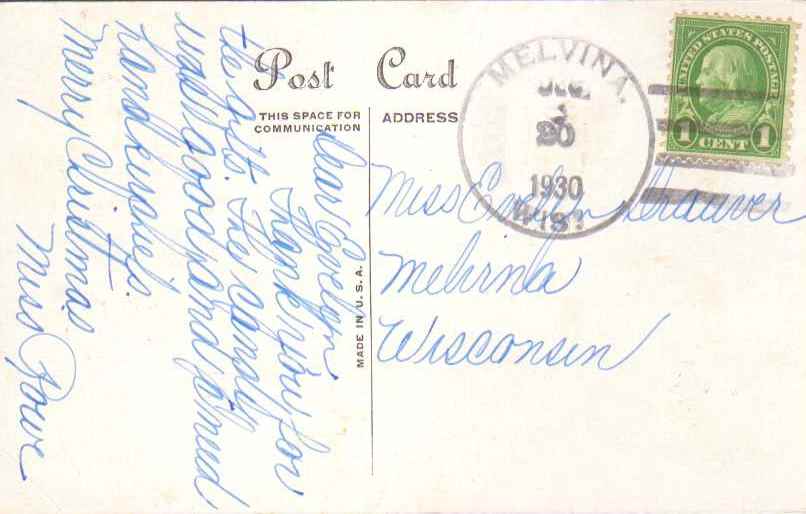 Post Card
THIS SPACE FOR
COMMUNICATION
ADDRESS
MADE IN U.S.A.
Dear Evelyn
Thank you for
the gifts. The candy
was good and I need
handkerchiefs.
Merry Christmas
Miss Rowe
Miss Evelyn
Melvina
Wisconsin
MELVINA.
DEC.
20
1930
WIS.
UNITED STATES POSTAGE
1 CENT 1